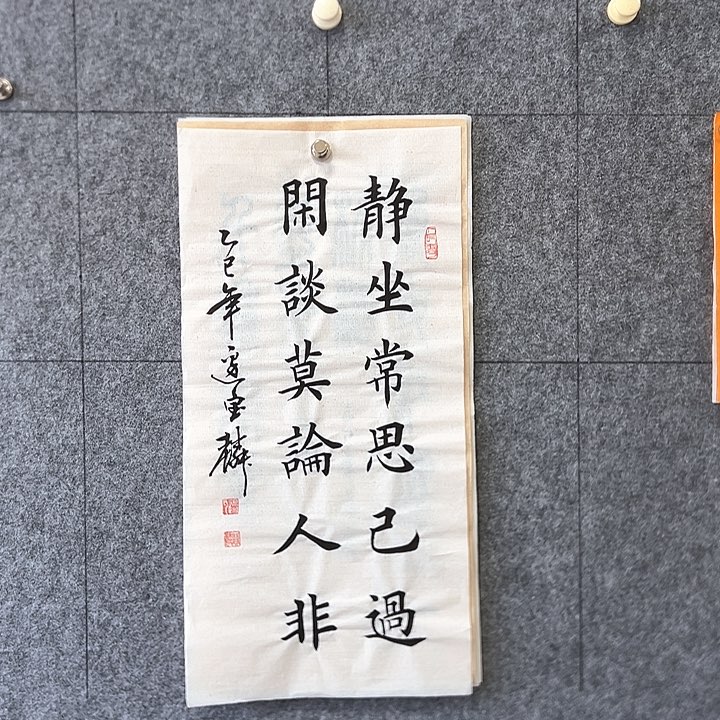 静坐常思己過
閑談莫論人非
乙巳年邊宝麟